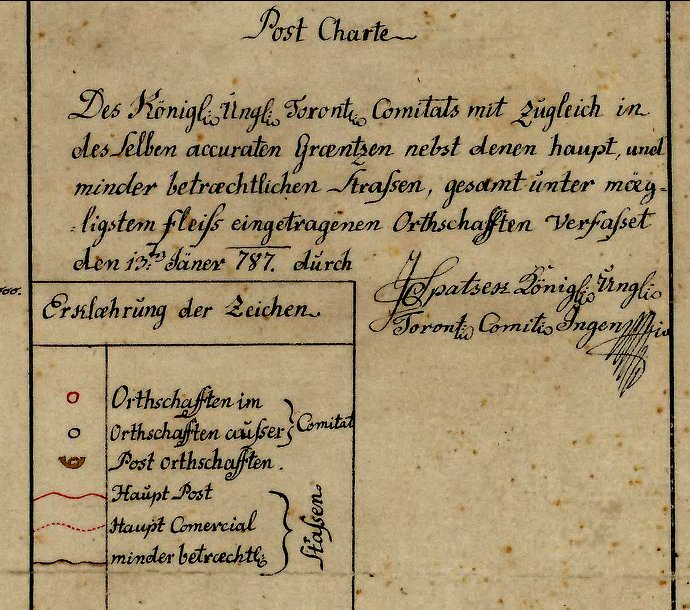 Post Charte
Des Königli: Ungli: Toronti: Comitats mit Zugleich in
des selben accuraten Græntzen nebst denen haupt, und
minder betræchtlichen Strassen, gesamt unter möeg=
=ligstem fleiss eingetragenen Orthschafften verfasset
den 13:ten Jäner 787. durch
Königli: Ungli:
Toronti: Comiti: Ingen
Erklæhrung der Zeichen
Orthschafften im
Orthschafften ausser
Comitat
Post orthschafften.
Haupt Post
Haupt Comercial
minder betræchtl:
Strassen